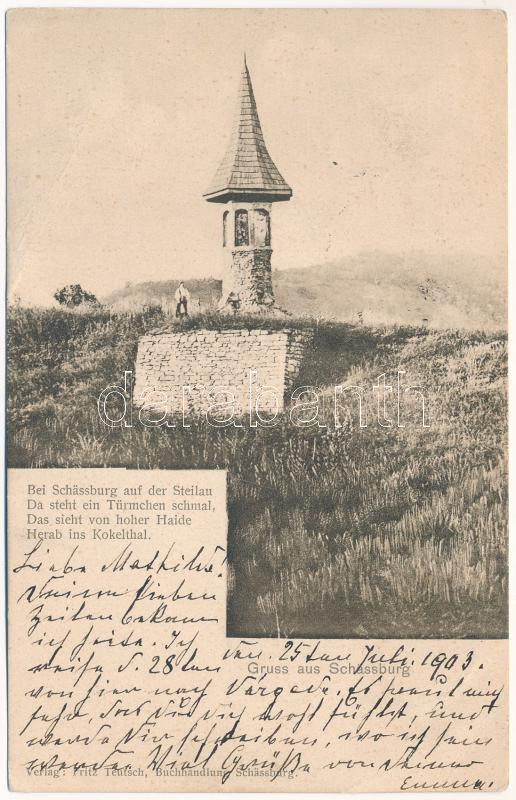 darabanth
Bei Schässburg auf der Steilau
Da steht ein Türmchen schmal,
Das sieht von hoher Haide
Herab ins Kokelthal.
Liebe Mathilde!
Deine lieben
Zeilen bekam
ich heute. Ich
reise d. 28ten
den 25ten Juli. 1903.
Gruss aus Schässburg
von hier nach Es freut mich
sehr, das Du Dich wohl fühlst, und
werde Dir schreiben, wo ich sein
werde. Viel Grüße von Deiner
Verlag: Fritz Teutsch, Buchhandlung Schässburg.
Emma.